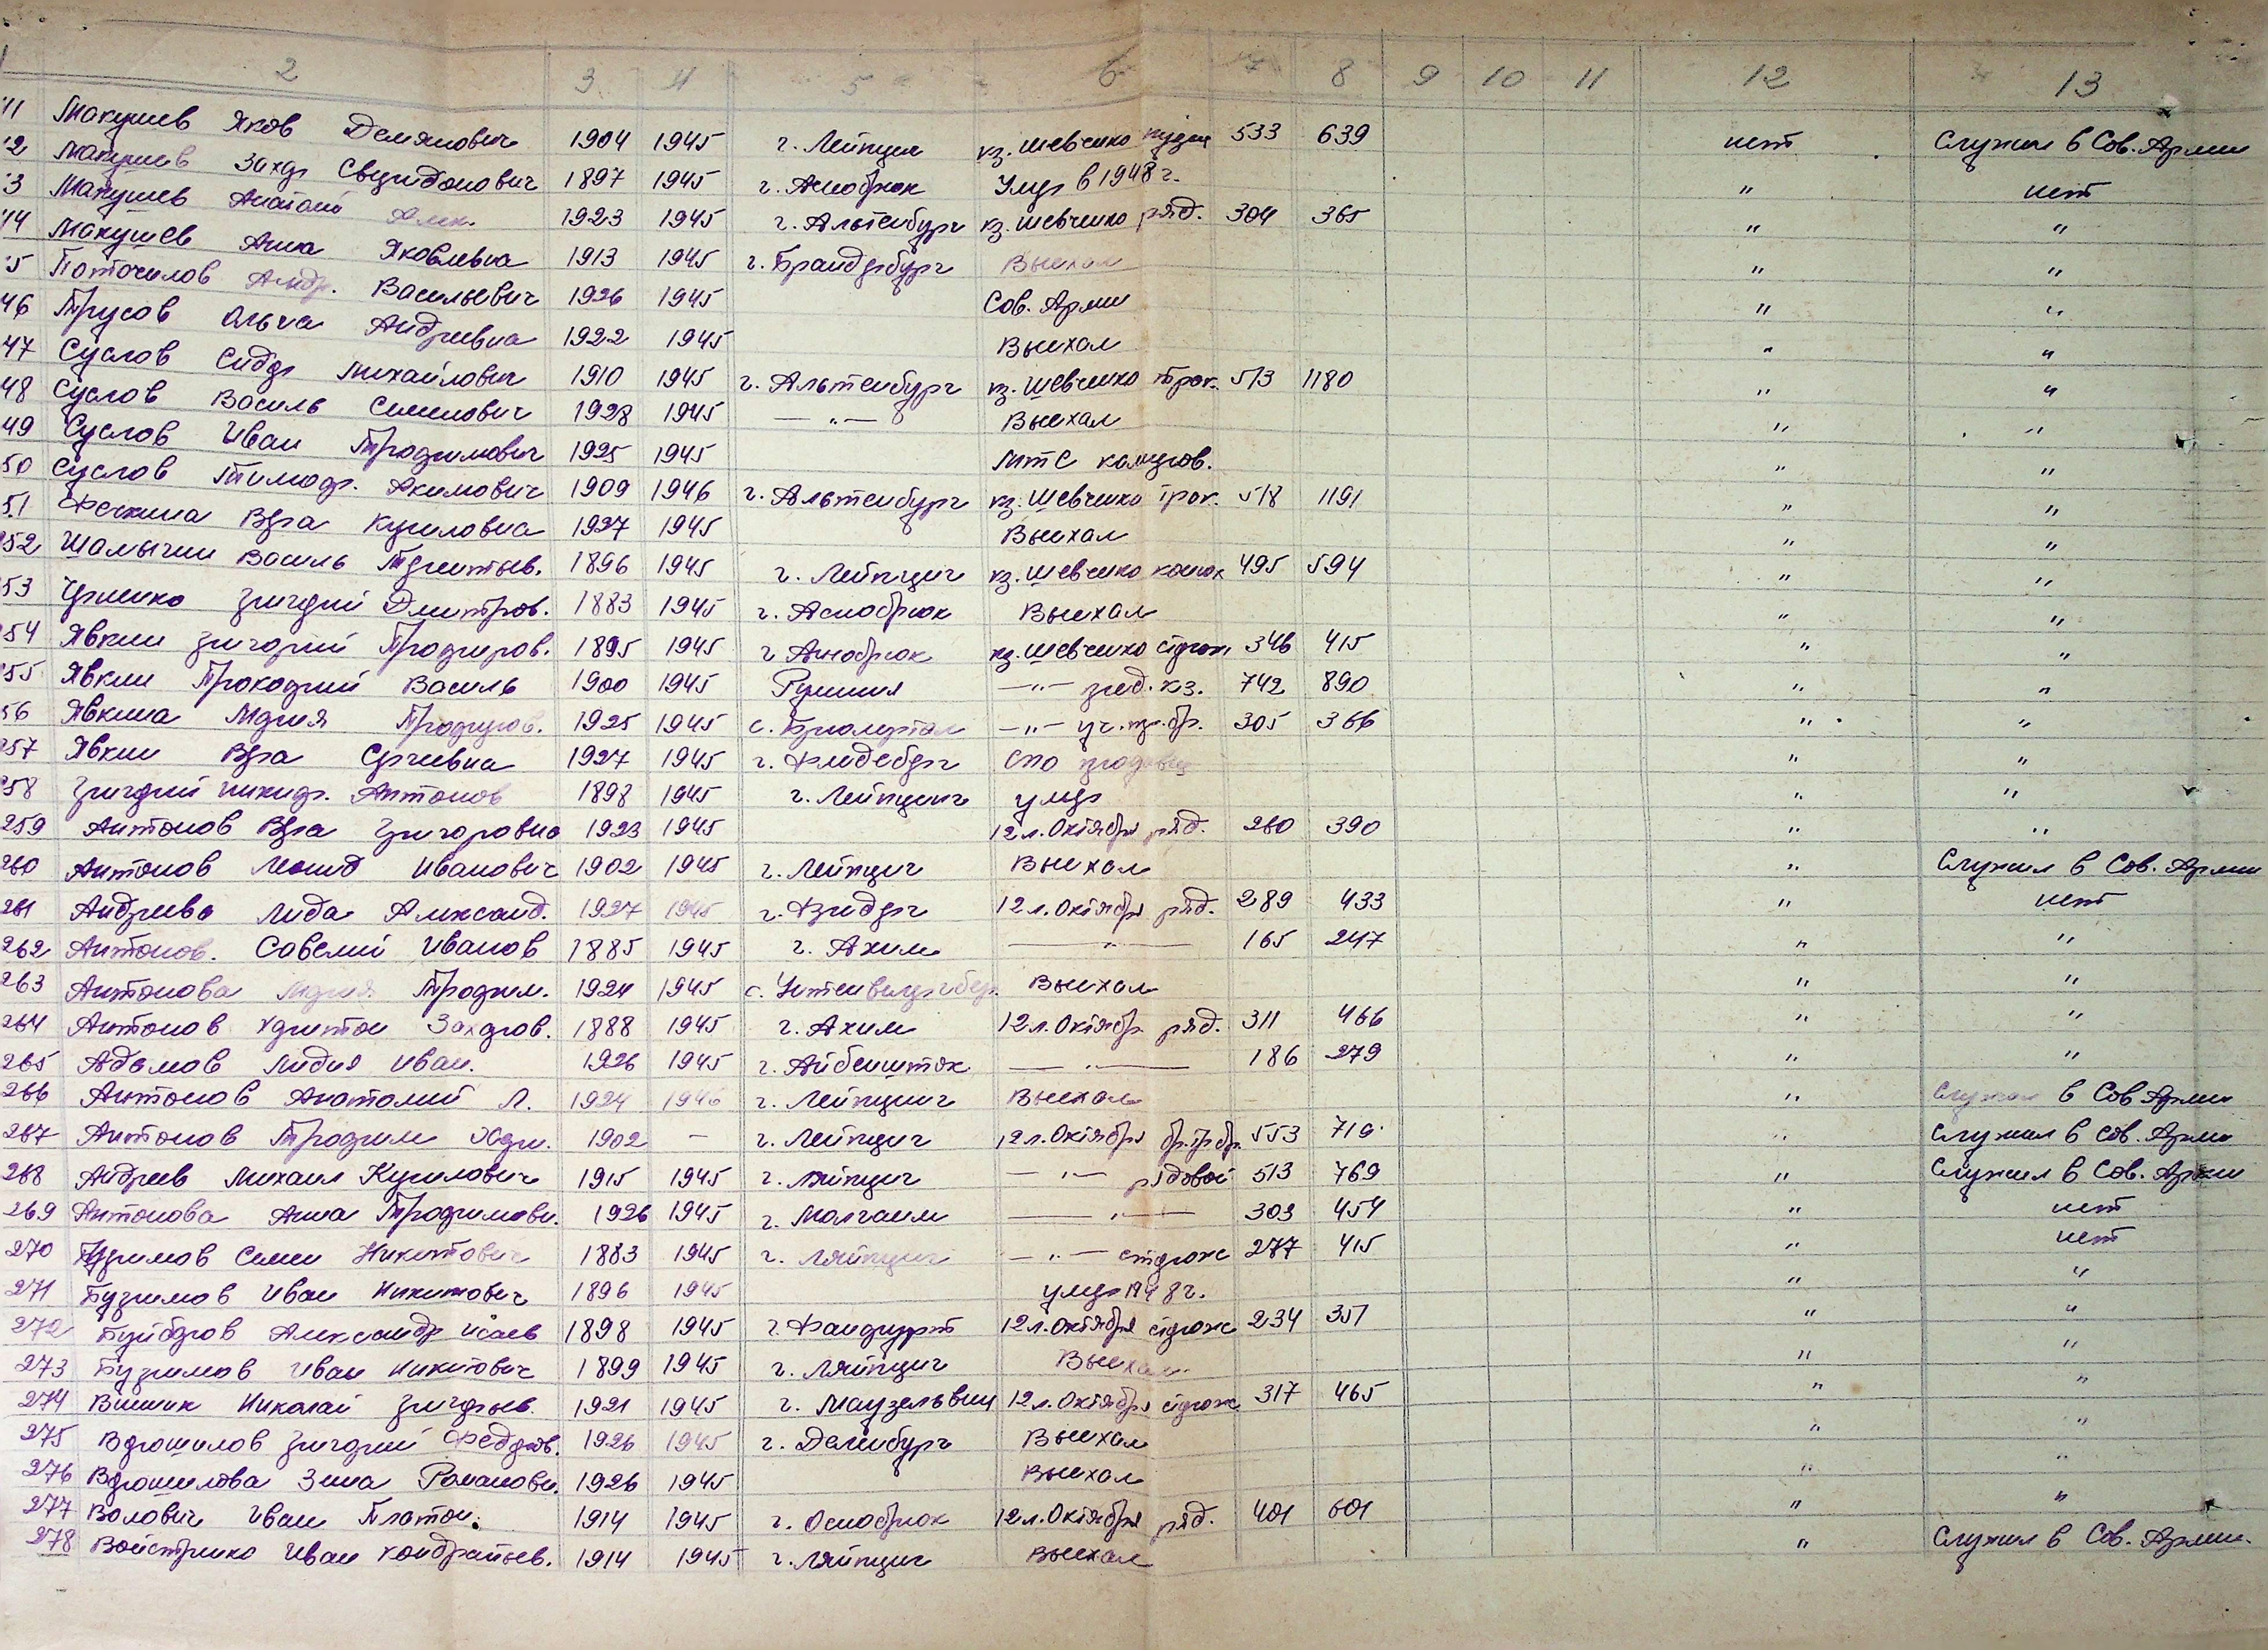 2 3 4 5 6 7 8 9 10 11 12 13
11 Макушев Яков Демянович 1904 1945 г. Лейпциг кз. Шевченко 533 639 нет Служил в Сов. Армии
12 Макушев Захар Свиридонович 1897 1945 г. Аснобрюк Умер в 1948 г. " нет
13 Макушев Анатолий Алек. 1923 1945 г. Альтенбург кз. Шевченко ряд. 304 365 " "
14 Макушев Анна Яковлевна 1913 1945 г. Брандербург Выехал " "
15 Поточилов Андр. Васильевич 1926 1945 Сов. Арми " "
46 Трусов Ольга Андреевна 1922 1945 Выехал " "
47 Суслов Сидор Михайлович 1910 1945 г. Альтенбург кз. Шевченко трак. 513 1180 " "
48 Суслов Василь Семенович 1928 1945 —"— Выехал " "
49 Суслов Иван Трофимович 1925 1945 МТС " "
50 Суслов Тимофер. Акимович 1909 1946 г. Альтенбург кз. Шевченко трак. 518 1191 " "
51 Фечкина Вера Куриловна 1927 1945 Выехал " "
252 Шалычин Василь Терентьев. 1896 1945 г. Лейпциг кз. Шевченко конюх 495 594 " "
53 Григорий Дмитров. 1883 1945 г. Аснобрюк Выехал " "
254 Явкин Григорий Профиров. 1895 1945 г. Аснобрюк кз. Шевченко сторож 346 415 " "
255 Явкин Прокофий Василь 1900 1945 Румния —"— пред. кз. 742 890 " "
56 Явкина Мария Профиров. 1925 1945 —"— 305 366 " "
257 Явкин Вера Сергеевна 1927 1945 СПО " "
258 Григорий Никифр. Антонов 1898 1945 г. Лейпциг умер " "
259 Антонов Вера Григоровна 1923 1945 12 л. Октября ряд. 260 390 " "
260 Антонов Леонид Иванович 1902 1945 г. Лейпциг Выехал " Служил в Сов. Армии
261 Андреева Лида Александ. 1927 1945 12 л. Октября ряд. 289 433 " нет
262 Антонов. Савелий Иванов 1885 1945 г. Ахим —"— 165 247 " "
263 Антонова Мария Трофим. 1924 1945 Выехал " "
264 Антонов Харитон Захаров. 1888 1945 г. Ахим 12 л. Октябр. ряд. 311 466 " "
265 Адамов Лидия Иван. 1926 1945 г. Айбеншток —"— 186 279 " "
266 Антонов Анатолий Л. 1924 1946 г. Лейпциг Выехал " Служил в Сов Армии
267 Антонов Трофим Хари. 1902 — г. Лейпциг 12 л. Октября 553 719 " Служил в Сов. Арми
268 Андреев Михаил Курилович 1915 1945 г. Ляйпциг —"— рядовой 513 769 " Служил в Сов. Армии
269 Антонова Анна Трофимовн. 1926 1945 г. Малгаим —"— 303 454 " нет
270 Семен Никитович 1883 1945 г. Ляйпциг —"— сторож 277 415 " нет
271 Бузимов Иван Никитович 1896 1945 умер 1948 г. " "
272 Буйбаров Александр Исаев 1898 1945 г. Фанфурт 12 л. Октября сторож 234 351 " "
273 Бузимов Иван Никитович 1899 1945 г. Ляйпциг Выехал " "
274 Вишник Николай Григорьев 1921 1945 г. Маузельвиц 12 л. Октября сторож 317 465 " "
275 Ворошилов Григорий Федоров. 1926 1945 г. Деленбург Выехал " "
276 Ворошилова Зина Романовн. 1926 1945 Выехал " "
277 Волович Иван Платон. 1914 1945 г. Оснобрюк 12 л. Октября ряд. 401 601 " "
278 Войстрико Иван Кондратьев. 1914 1945 г. Ляйпциг Выехал " Служил в Сов. Армии.